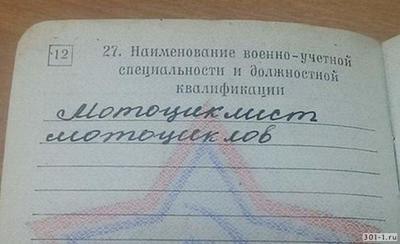 12
27. Наименование военно-учетной
специальности и должностной
квалификации
Мотоциклист
мотоциклов
301-1.ru